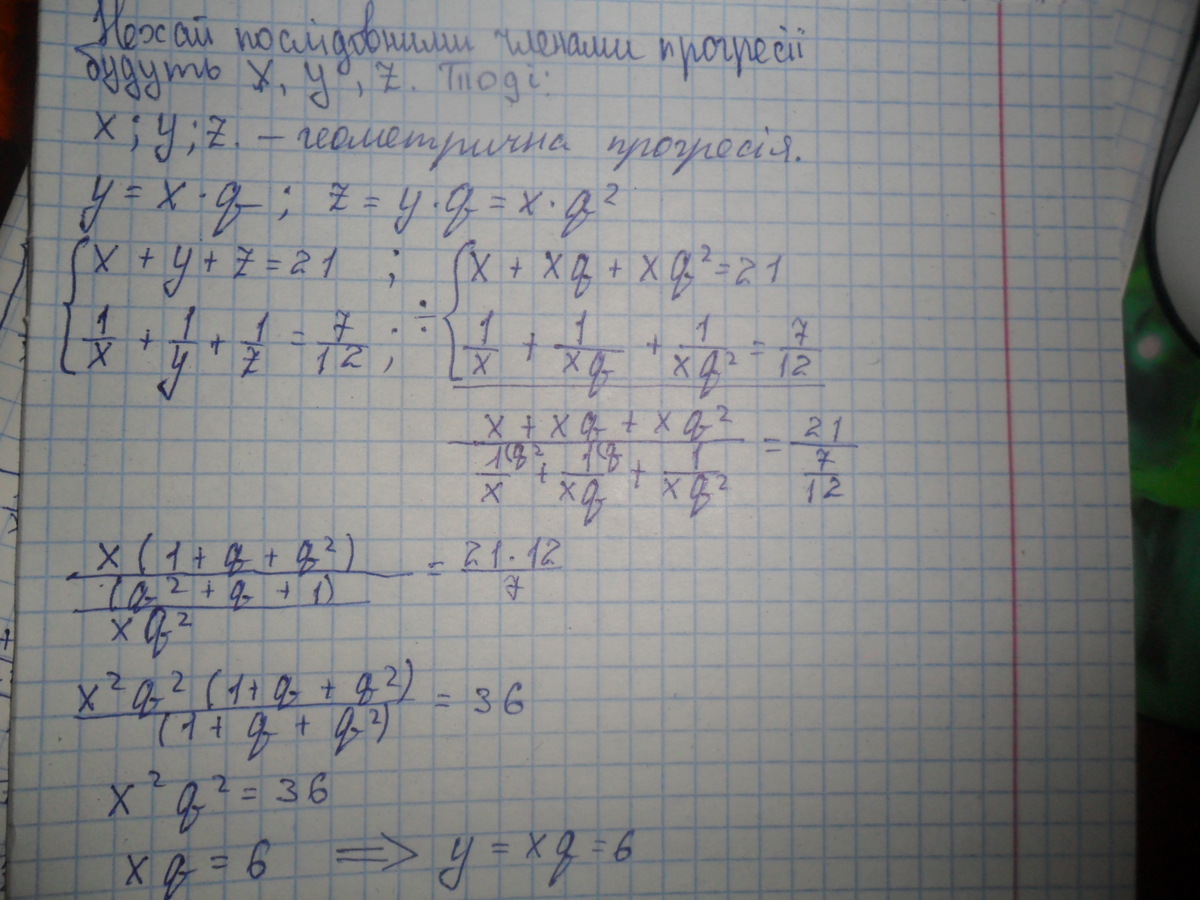 Нехай послідовними членами прогресії
будуть x, y, z. Тоді:
x; y; z. – геометрична прогресія.
y = x · q ; z = y · q = x · q²
{ x + y + z = 21 ; { x + xq + xq² = 21
1/x + 1/y + 1/z = 7/12 ; ÷ 1/x + 1/xq + 1/xq² = 7/12
(x + xq + xq²) / (1(q²/x + 1(q/xq + 1/xq²) = 21 / (7/12)
x(1 + q + q²) / ((q² + q + 1) / xq²) = 21·12 / 7
x²q²(1 + q + q²) / (1 + q + q²) = 36
x²q² = 36
xq = 6 ⟹ y = xq = 6